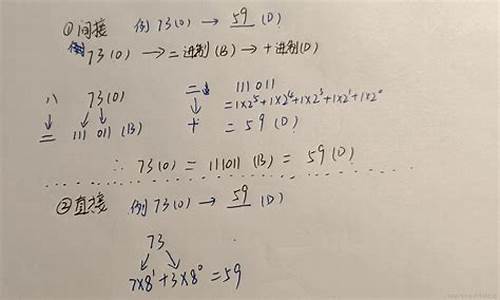 ①间接 例 73(O) → 59 (D)
例 73(O) → 二进制(B) → 十进制(D)
八 73(O) 二 111 011
↓ ↙ ↓ ↓ =1×2⁵+1×2⁴+1×2³+1×2¹+1×2⁰
二 111 011 (B) 十 = 59 (D)
∴ 73(O) = 111011 (B) = 59 (D)
②直接 例 73(O) → 59 (D)
73
↙ ↘
7×8¹+3×8⁰=59